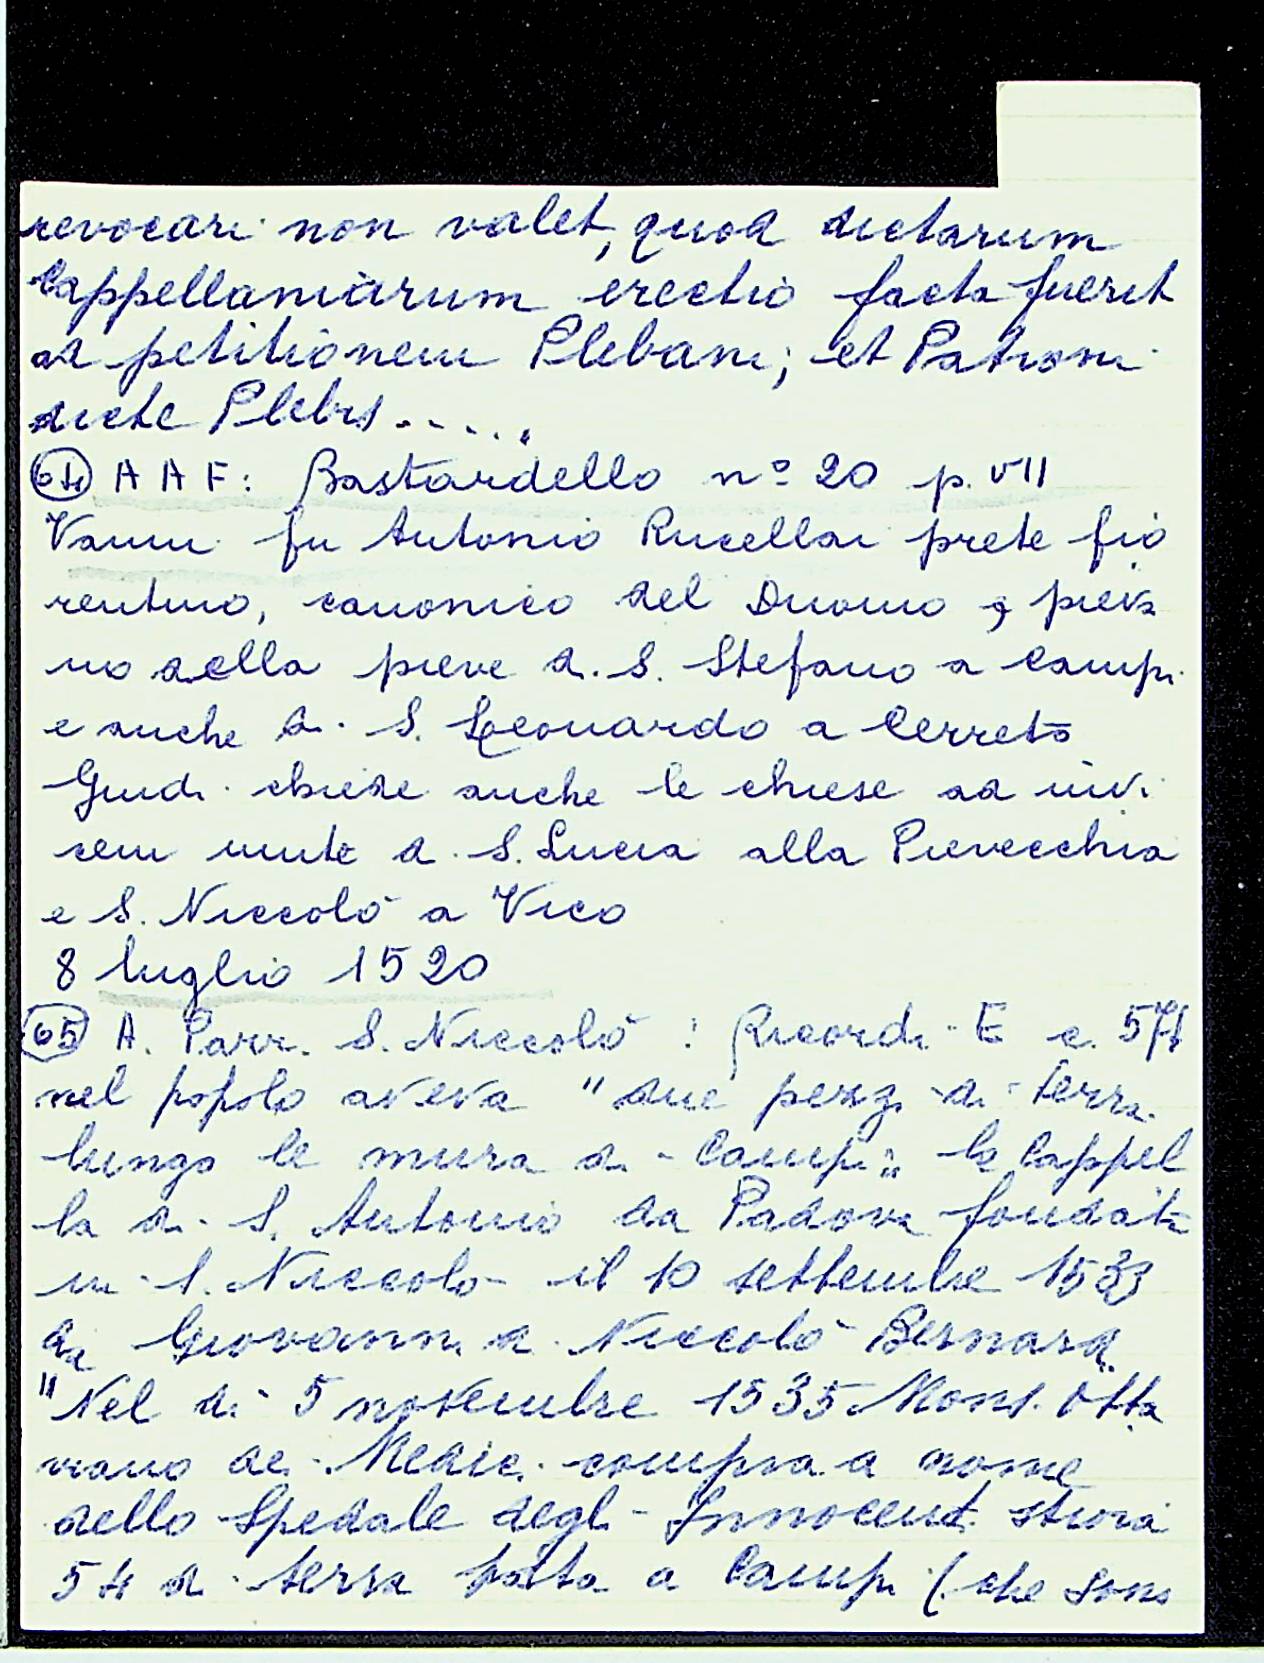 revocari non valet, quod dictarum
Cappellaniarum erectio facta fuerit
ad petitionem Plebani; et Patroni
dicte Plebis.....
64 A A F: Bastardello n° 20 p. VII
Vanni fu Antonio Rucellai prete fio
rentino, canonico del Duomo, pieva
no della pieve di S. Stefano a Campi
e anche di S. Leonardo a Cerreto
Guidi chiede anche le chiese ad invi
cem unite di S. Lucia alla Pievecchia
e S. Niccolò a Vico
8 luglio 1520
65 A. Parr. S. Niccolò: Ricordi E c. 571
nel popolo aveva "due pezzi di terra
lungo le mura di Campi" la Cappel
la di S. Antonio da Padova fondata
in S. Niccolò il 10 settembre 1533
da Giovanni di Niccolò Bernardi
"Nel dì 5 novembre 1535 Mons. Otta
viano de Medici compra a nome
dello Spedale degli Innocenti stiora
54 di terra posta a Campi (che sono